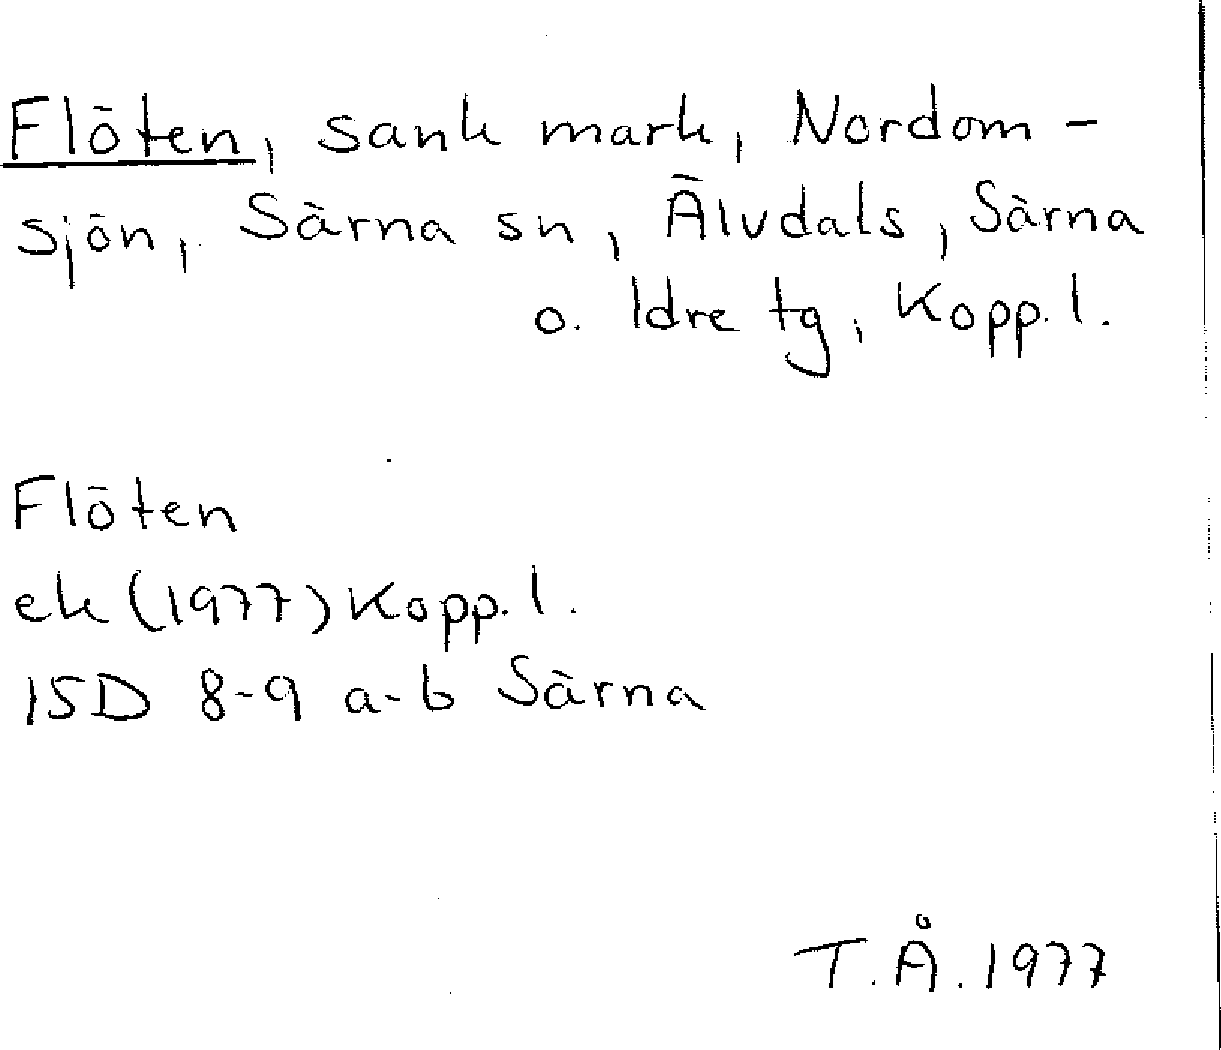 Flöten, sank mark, Nordom-
sjön, Särna sn, Älvdals, Särna
o. Idre tg, Kopp. l.
Flöten
ek (1977) Kopp. l.
15D 8-9 a-b Särna
T.Å. 1977